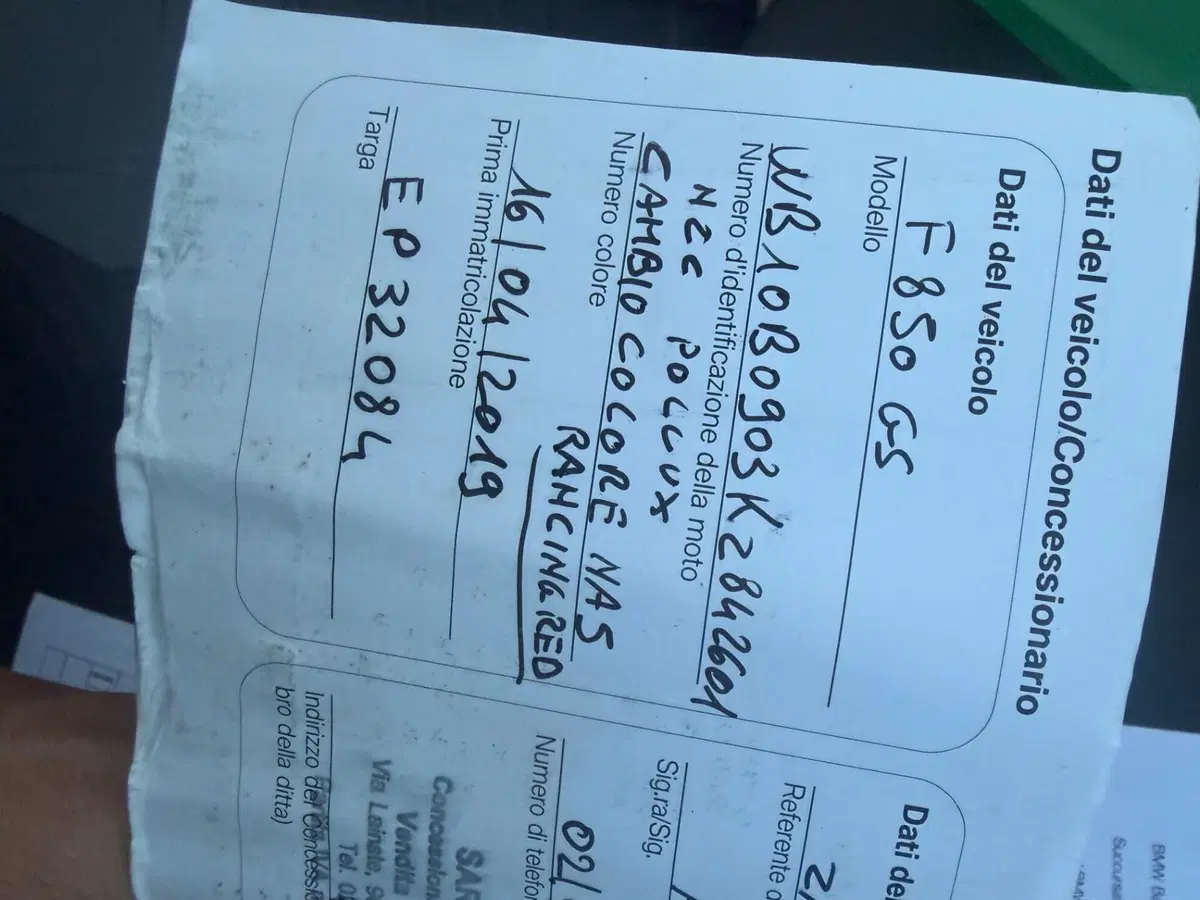 Dati del veicolo/Concessionario
Dati del veicolo
F 850 GS
Modello
WB10B0903KZ842601
Numero d'identificazione della moto
N2C POLLUX
CAMBIO COLORE NA5
Numero colore
RANCINGRED
16/04/2019
Prima immatricolazione
EP32084
Targa
Dati de
Referente
Sig.ra/Sig.
02/
Numero di telefon
SAR
Concession
Vendita
Via Lainate, 9
Tel. 0
Indirizzo del Concessi
bro della ditta)
BMW B
Succursal